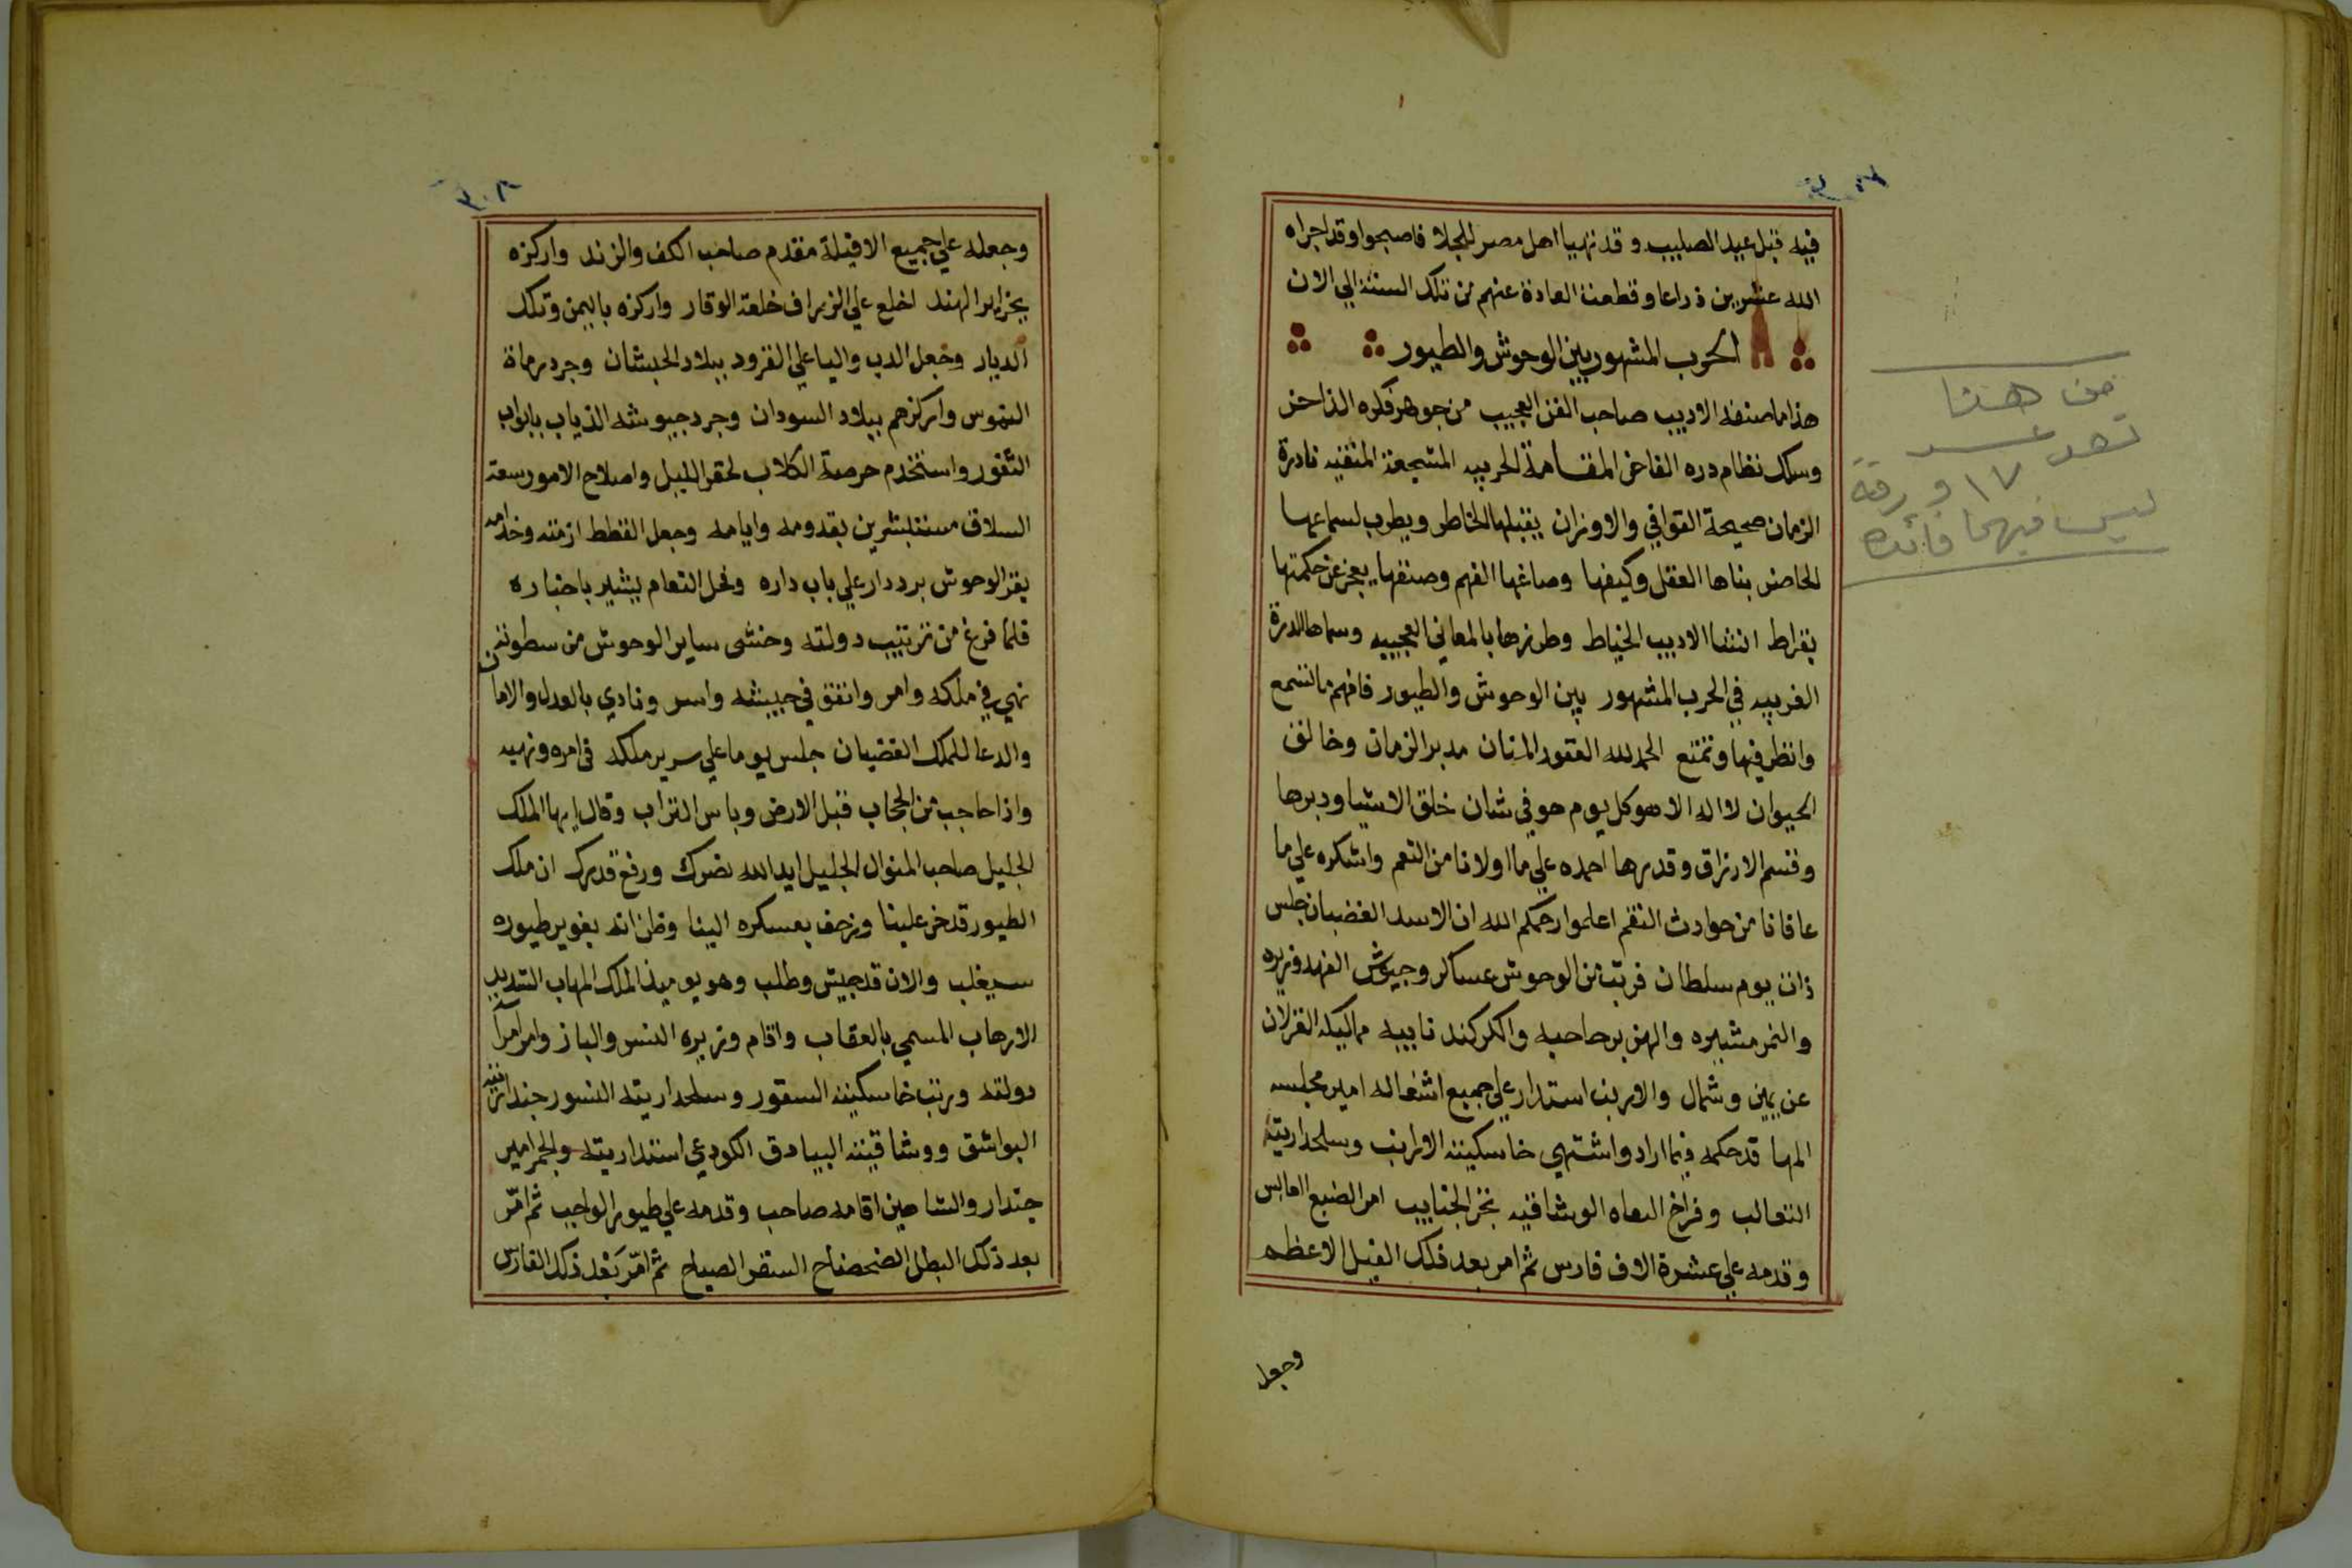 فيه قبل عيد الصليب وقد تهيا اهل مصر للجلا فاصبحوا وقد اجراه
الله عشرين ذراعا وقطعت العادة عنهم من تلك السنة الي الان
الحرب المشهور بين الوحوش والطيور
هذا ما صنفه الاديب صاحب الفن العجيب من جوهر فكره الذاخر
وسلك نظام دره الفاخر المقامة الحربيه المشجعة المتقنه نادرة
الزمان صحيحة القوافي والاوزان يقبلها الخاطر ويطرب لسماعها
الحاضر بناها العقل وكيفها وصاغها الفهم وصنفها يعجز عن حكمتها
بقراط انشا الاديب الخياط وطرزها بالمعاني العجيبه وسماها الدرة
الغريبه في الحرب المشهور بين الوحوش والطيور فافهم ما تسمع
وانظر فيها وتمتع الحمد لله الغفور المنان مدبر الزمان وخالق
الحيوان لا اله الا هو كل يوم هو في شان خلق الاشيا ودبرها
وقسم الارزاق وقدرها احمده علي ما اولانا من النعم واشكره علي ما
عافانا من حوادث النقم اعلموا رحمكم الله ان الاسد الغضبان جلس
ذات يوم سلطان فرتب من الوحوش عساكر وجيوش الفهد وزيره
والنمر مشيره والهزبر حاجبه والكركند نايبه مماليكه الغزلان
عن يمين وشمال والارنب استدار علي جميع اشغاله امير مجلسه
المها قد حكمه فيما اراد واشتهي خاسكيته الارانب وسلحداريته
الثعالب وفراخ المهاه الوشاقيه بنخر الجنايب امر الضبع العابس
وقدمه علي عشرة الاف فارس ثم امر بعد ذلك الفيل الاعظم
وجعل
من هنا
١٧ ورقة
ليس فيها فائده
٣٠٨
وجعله علي جميع الافيلة مقدم صاحب الكف والزند واركزه
بجزاير الهند اخلع علي الزراف خلعة الوقار واركزه باليمن وتلك
الديار وجعل الدب واليا علي القرود ببلاد الحبشان وجرد رماة
النموس واركزهم ببلاد السودان وجرد جيوشه الذياب بابواب
الثغور واستخدم حرصة الكلاب لحقر الليل واصلاح الامور سعة
السلاق مستبشرين بقدومه وايامه وجعل القطط ازمته وخدامه
بقر الوحوش برددار علي باب داره وفحل النعام يبشير باخباره
فلما فرغ من ترتيب دولته وخشي ساير الوحوش من سطوته
نهي في ملكه وامر وانفق في جيشه واسر ونادي بالعدل والامان
والدعا للملك الغضبان جلس يوما علي سرير ملكه في امره ونهيه
واذا حاجب من الحجاب قبل الارض وباس التراب وقال ايها الملك
الجليل صاحب المنوال الجليل ايد الله نصرك ورفع قدرك ان ملك
الطيور قد خر علينا وزحف بعسكره الينا وظن انه بغوير طيوره
سيغلب والان قد جيش وطلب وهو يوميذ الملك المهاب الشديد
الارهاب المسمي بالعقاب واقام وزيره النسر والباز وامر امرآ
دولته ورتب خاسكيته السقور وسلحداريته النسور جنداريته
البواشق ووشاقيته البيادق الكودعي استداريته والحمر امير
جندار والشاهين اقامه صاحب وقدمه علي طيور الواجب ثم امّر
بعد ذلك البطل الضحضاح السنقر الصياح ثم امّر بَعْد ذلك الفارس